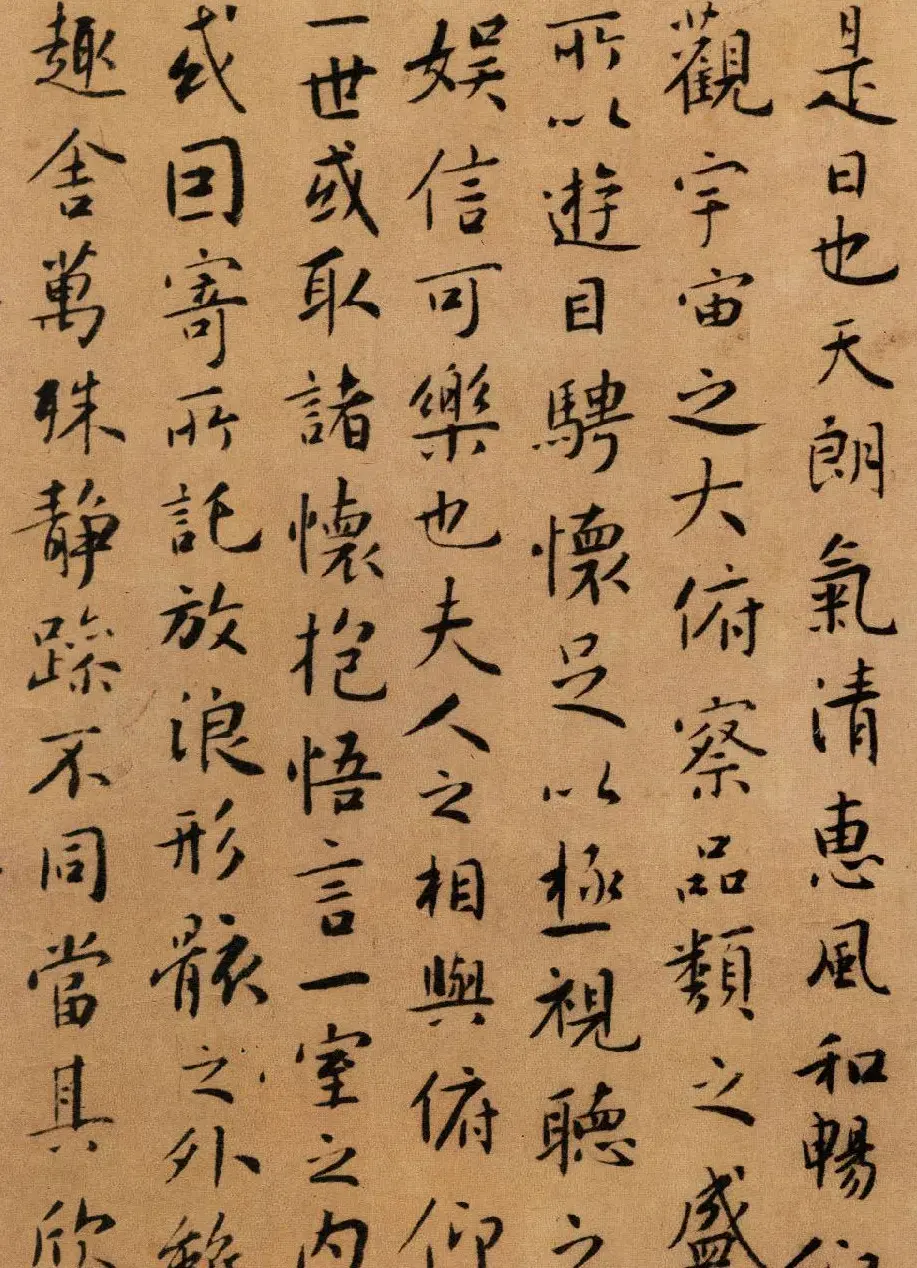 是日也天朗氣清惠風和暢
觀宇宙之大俯察品類之盛
所以遊目騁懷足以極視聽之
娛信可樂也夫人之相與俯仰
一世或取諸懷抱悟言一室之内
或因寄所託放浪形骸之外雖
趣舍萬殊静躁不同當其欣